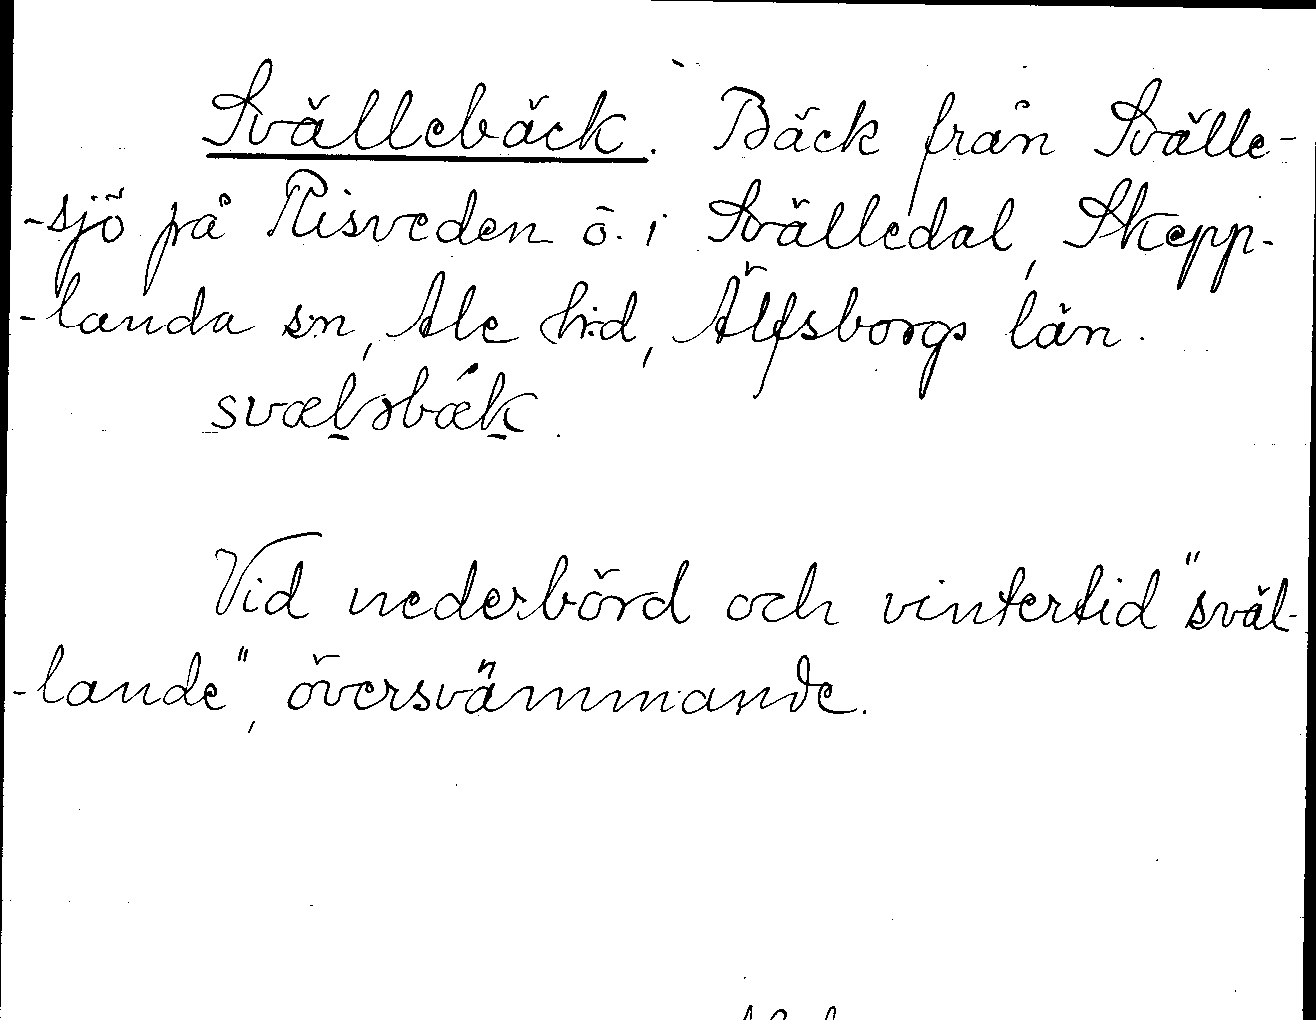 Svällebäck. Bäck från Svälle-
-sjö på Risveden ö. i Svälledal, Skepp-
-landa sn, Ale hd, Älfsborgs län.
svæləbæk.
Vid nederbörd och vintertid "sväl-
-lande", översvämmande.